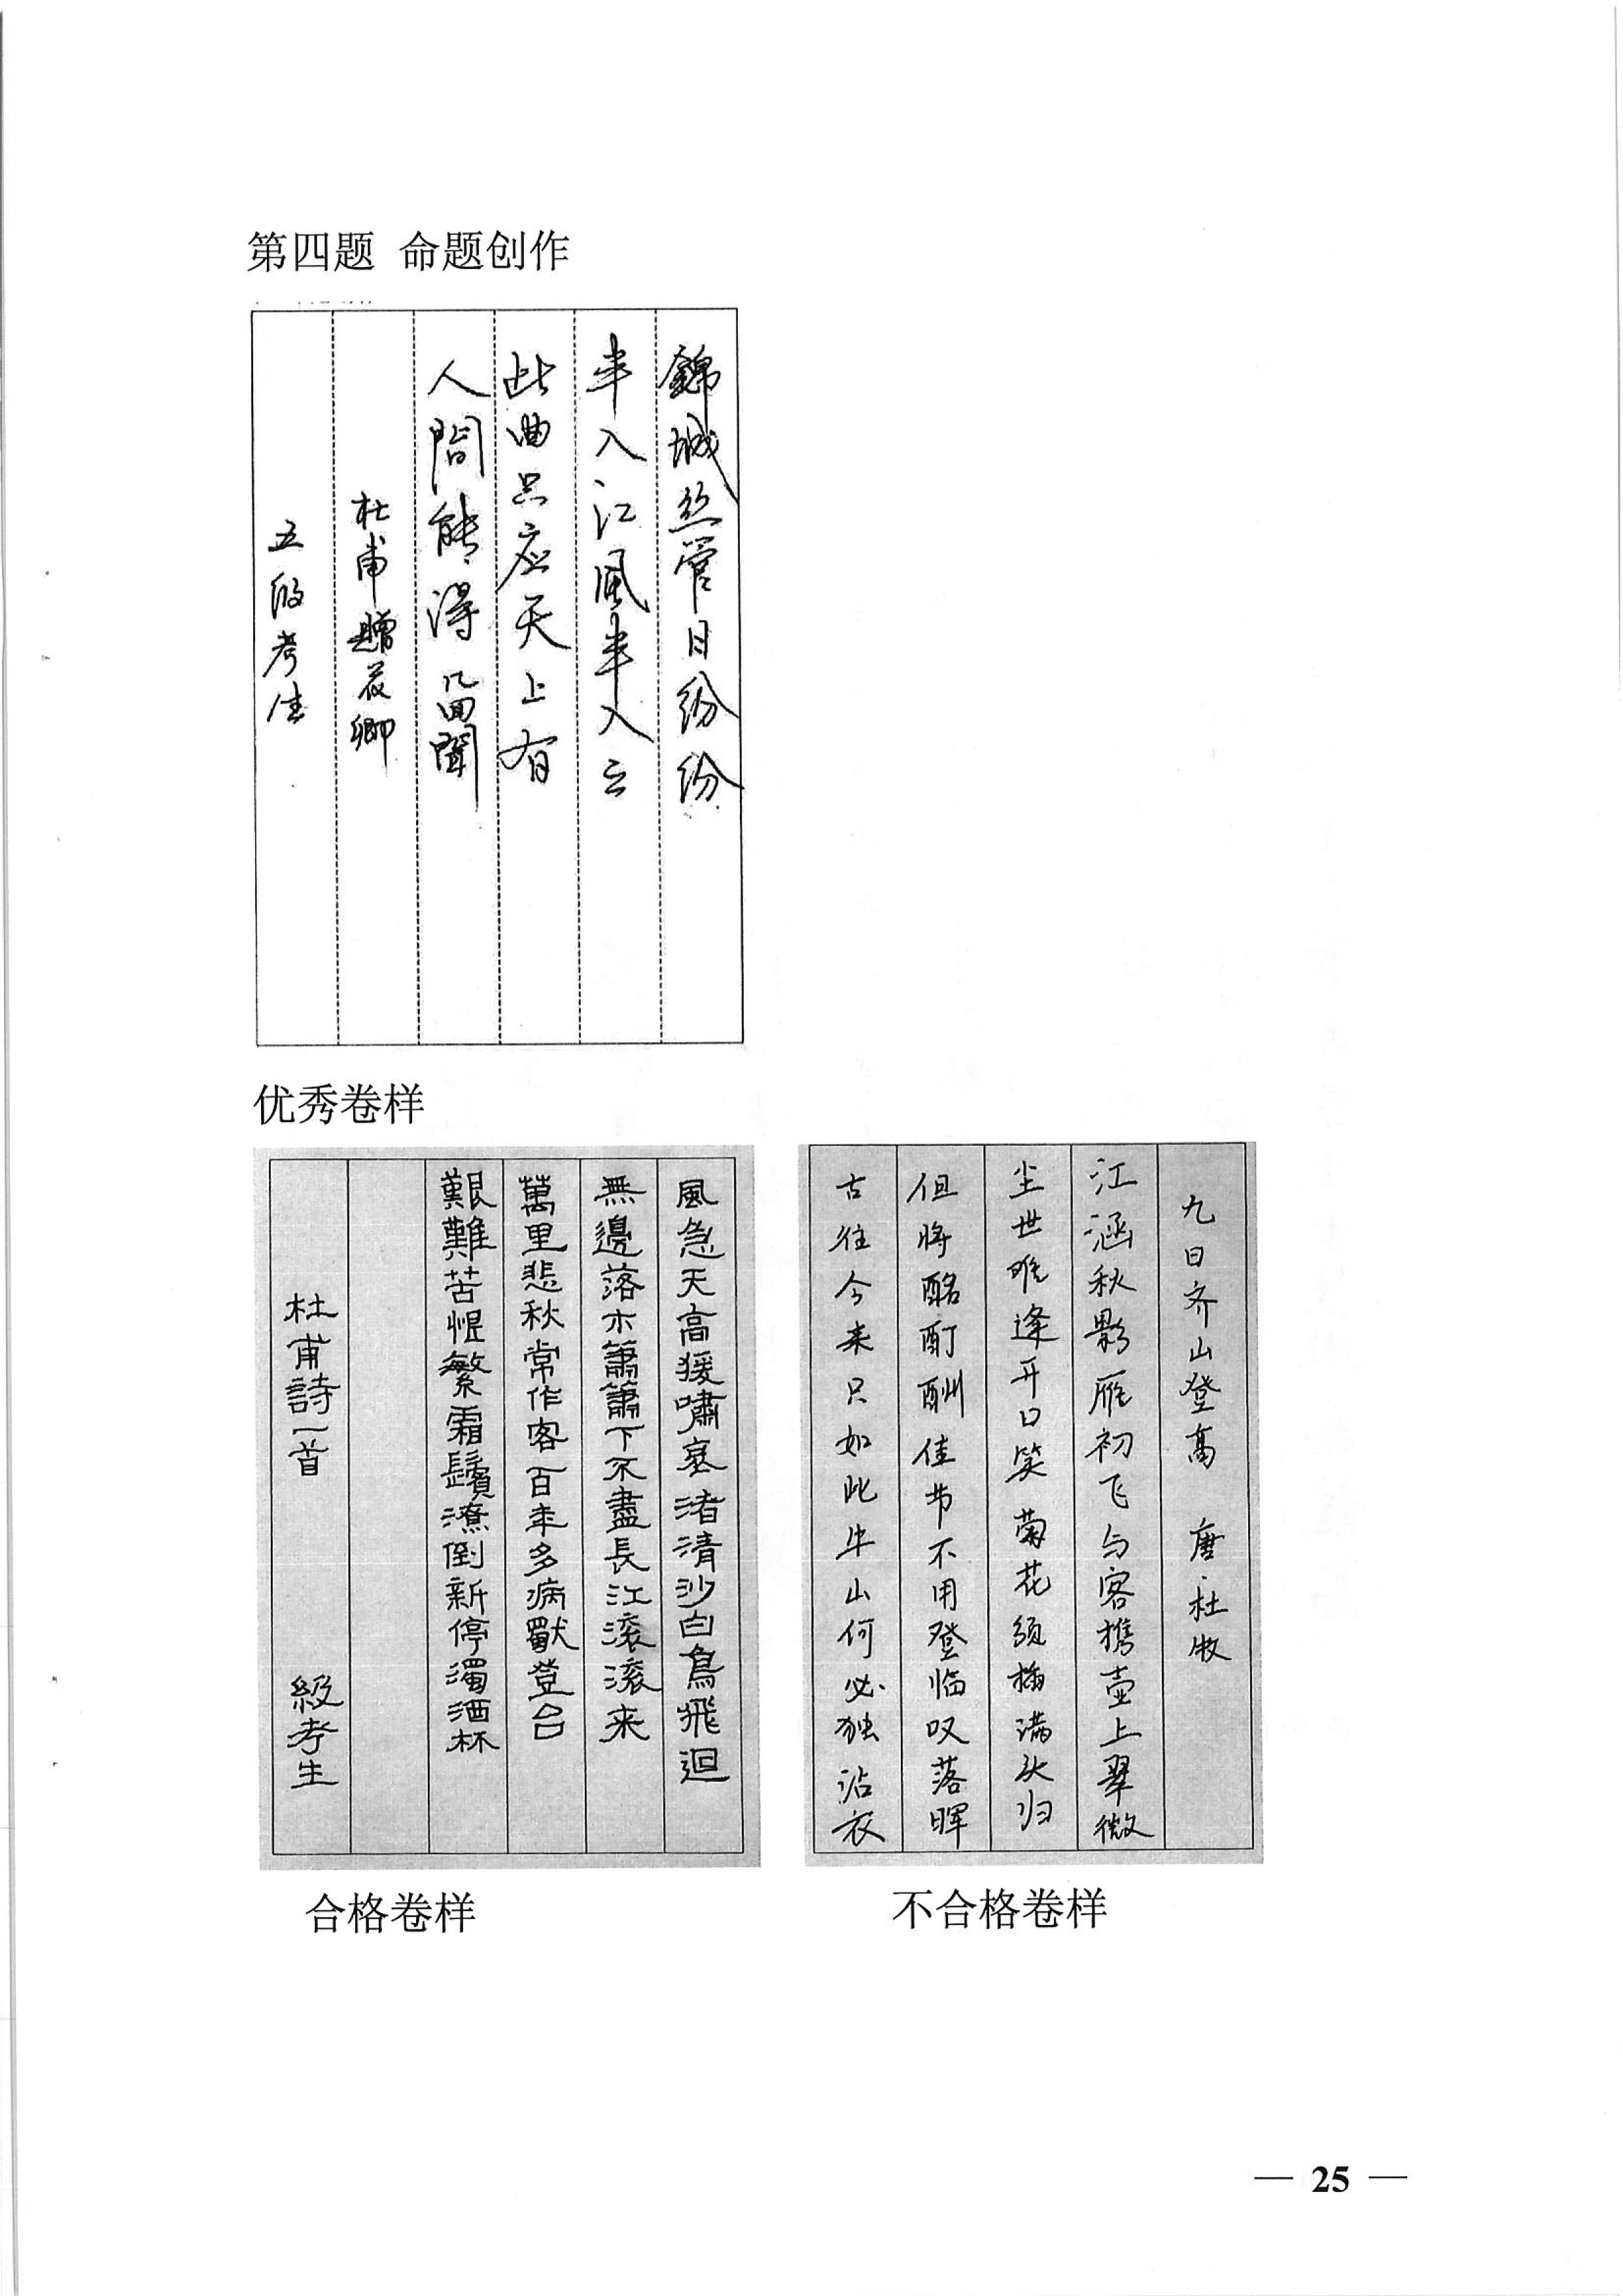 第四题 命题创作
錦城丝管日纷纷
半入江風半入云
此曲只应天上有
人間能得几回聞
杜甫赠花卿
五级考生
优秀卷样
風急天高猨嘯哀渚清沙白鳥飛迴
無邊落木蕭蕭下不盡長江滚滚来
萬里悲秋常作客百年多病獨登台
艱難苦恨繁霜鬢潦倒新停濁酒杯
杜甫詩一首 級考生
合格卷样
九日齐山登高 唐·杜牧
江涵秋影雁初飞与客携壶上翠微
尘世难逢开口笑菊花须插满头归
但将酩酊酬佳节不用登临叹落晖
古往今来只如此牛山何必独沾衣
不合格卷样
— 25 —